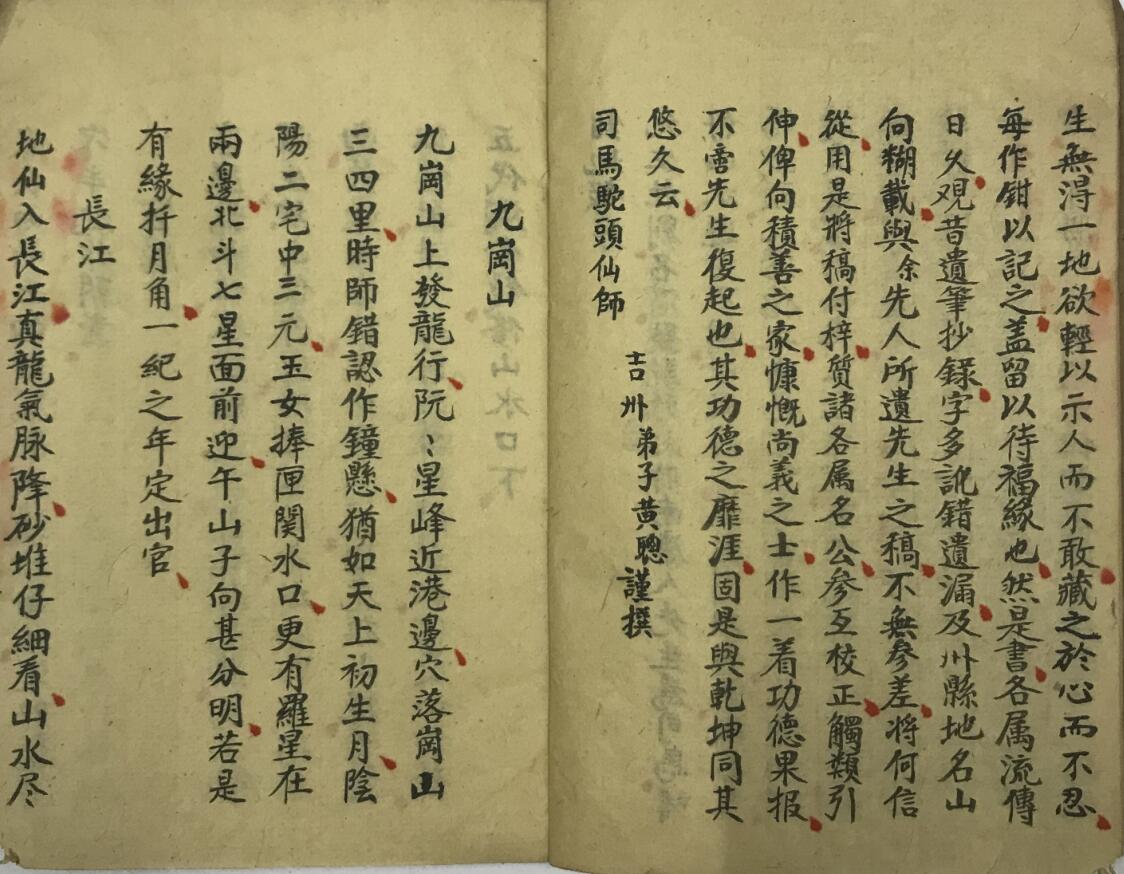 生無淂一地欲輕以示人而不敢藏之於心而不忍
每作鉗以記之盖留以待福緣也然是書各属流傳
日乆观昔遺筆抄録字多訛錯遺漏及州縣地名山
向糊載與余先人所遺先生之稿不無參差將何信
從用是將稿付梓質諸各属名公參互校正觸類引
伸俾向積善之家慷慨尚義之士作一着功德果报
不啻先生復起也其功德之靡涯固是與乾坤同其
悠久云
司馬駝頭仙師
吉州弟子黄聰謹撰
九崗山
九崗山上發龍行阮〻星峰近港邊穴落崗山
三四里時師錯認作鐘懸猶如天上初生月陰
陽二宅中三元玉女捧匣関水口更有羅星在
兩邊北斗七星面前迎午山子向甚分明若是
有緣扦月角一紀之年定出官
長江
地仙入長江真龍氣脉降砂堆仔細看山水尽